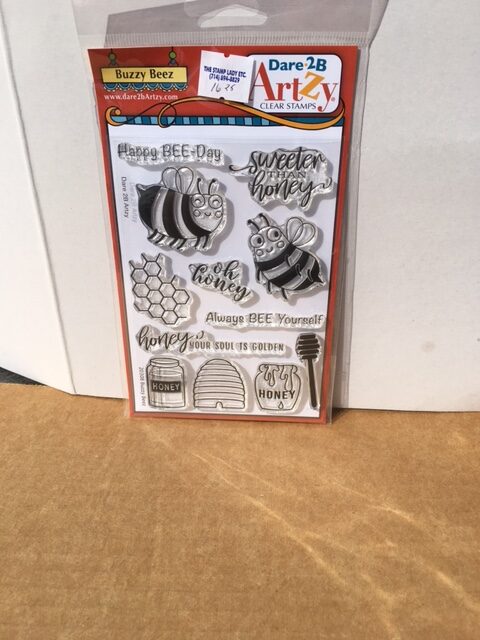 Buzzy Beez
www.dare2bArtzy.com
THE STAMP LADY ETC.
(714) 696-8829
16 25
Dare 2B
ArtZy
CLEAR STAMPS
Happy BEE-Day
sweeter
THAN
honey
Dare 2B Artzy
oh
honey
Always BEE Yourself
honey YOUR SOUL IS GOLDEN
Buzzy Beez
HONEY
HONEY